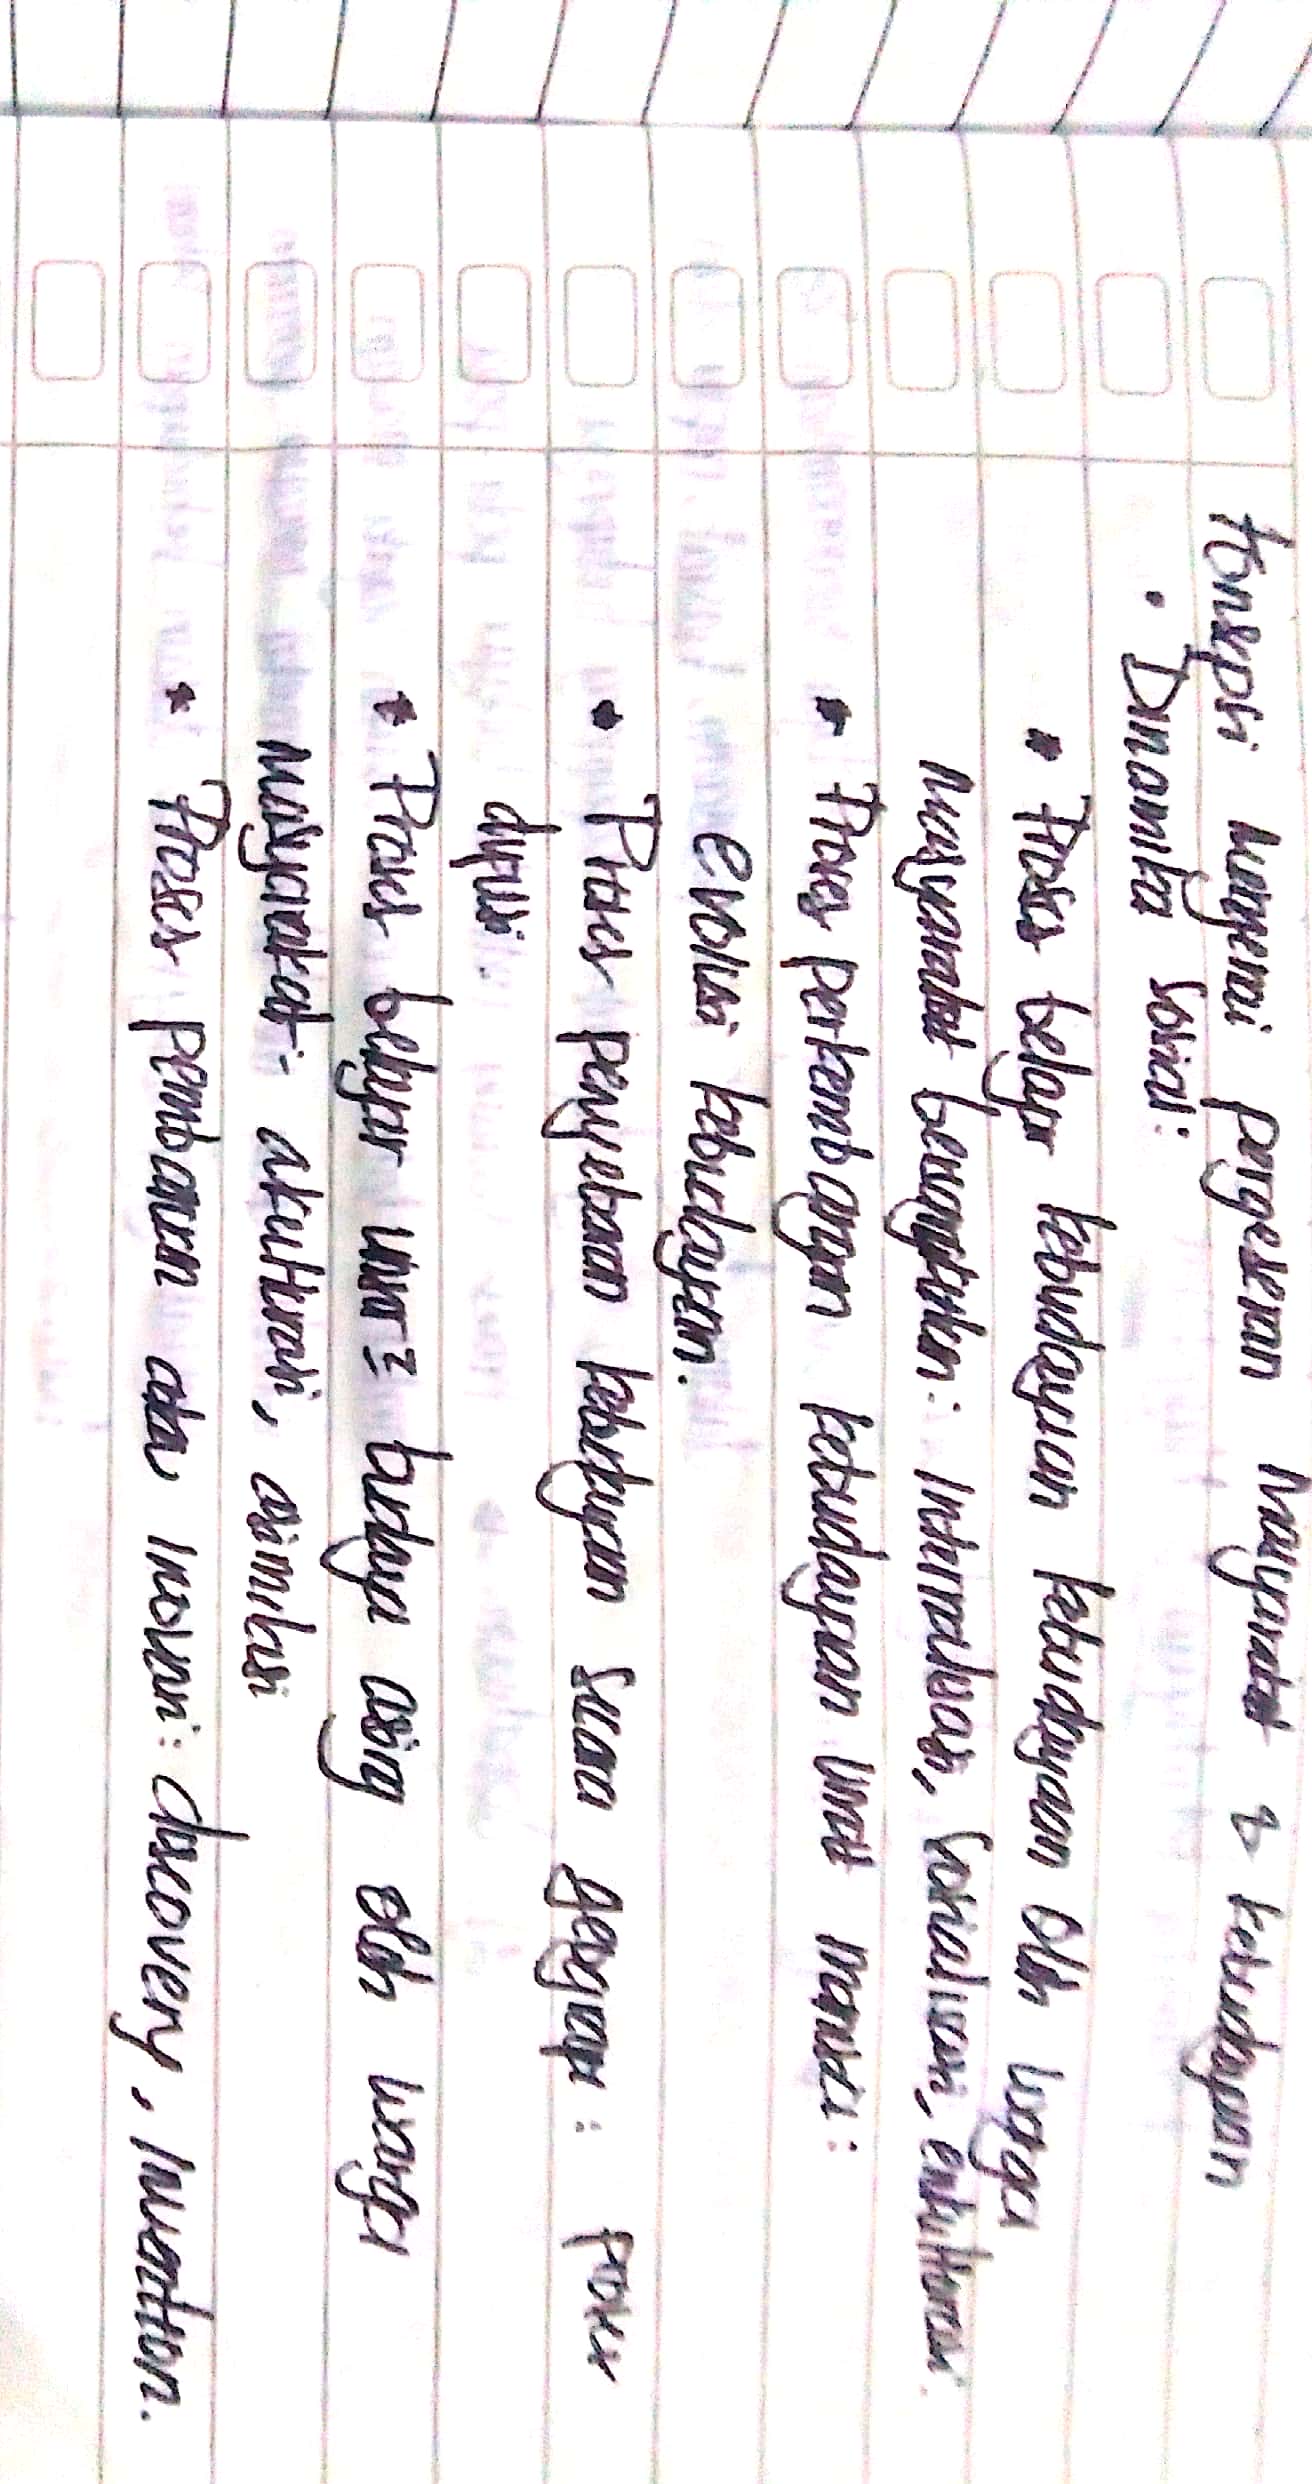 Konsepsi mengenai pergeseran masyarakat & kebudayaan
• Dinamika sosial:
* Proses belajar kebudayaan kebudayaan oleh warga
masyarakat bersangkutan: Internalisasi, Sosialisasi, enkulturasi.
* Proses perkembangan kebudayaan umat manusia:
evolusi kebudayaan.
* Proses penyebaran kebudayaan secara geografi: proses
difusi.
* Proses belajar unsur² budaya asing oleh warga
masyarakat: akulturasi, asimilasi
* Proses pembaruan atau inovasi: discovery, Invention.